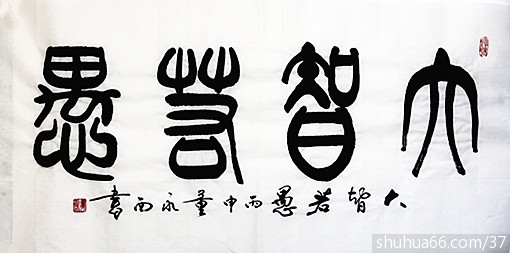 大智若愚
大智若愚丙申董永西書
shuhua66.com/37